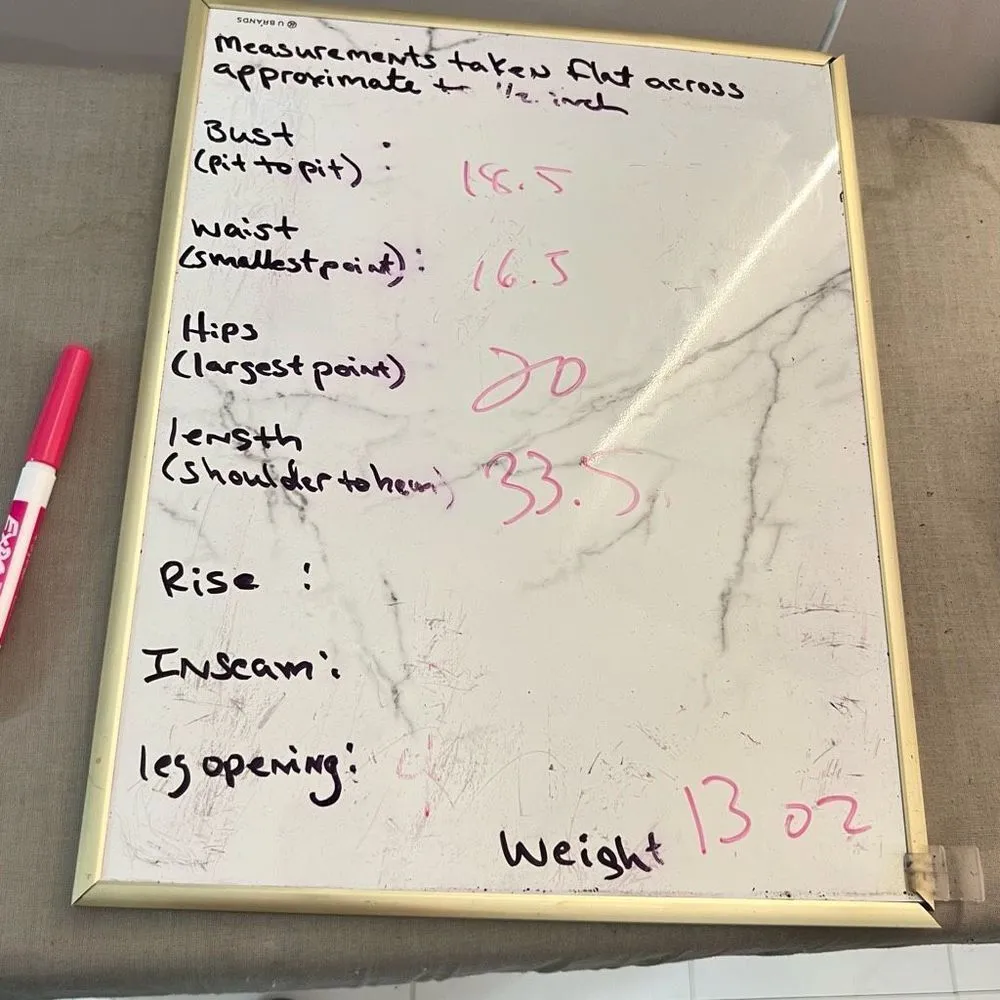 U BRANDS
Measurements taken flat across
approximate to 1/2 inch
Bust
(pit to pit) : 18.5
Waist
(smallest point): 16.5
Hips
(largest point) 20
length
(shoulder to hem) 33.5
Rise :
Inseam:
leg opening:
Weight 13 oz
EXPO